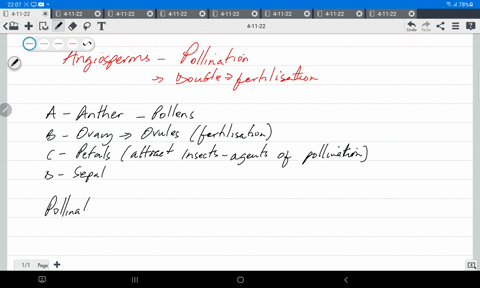 22:07 78%
4-11-22 4-11-22 4-11-22 4-11-22 4-11-22 4-11-22 4-11-22 4-11-22
4-11-22 Undo Redo
Angiosperms - Pollination
→ Double → fertilisation
A - Anther - Pollens
B - Ovary → Ovules (fertilisation)
C - Petals (attract insects - agents of pollination)
D - Sepal
Pollinat
1/1 Page